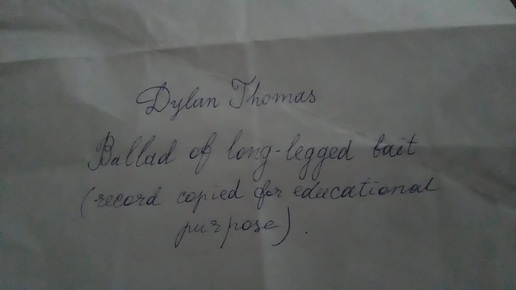 Dylan Thomas
Ballad of long-legged bait
(record copied for educational
purpose).